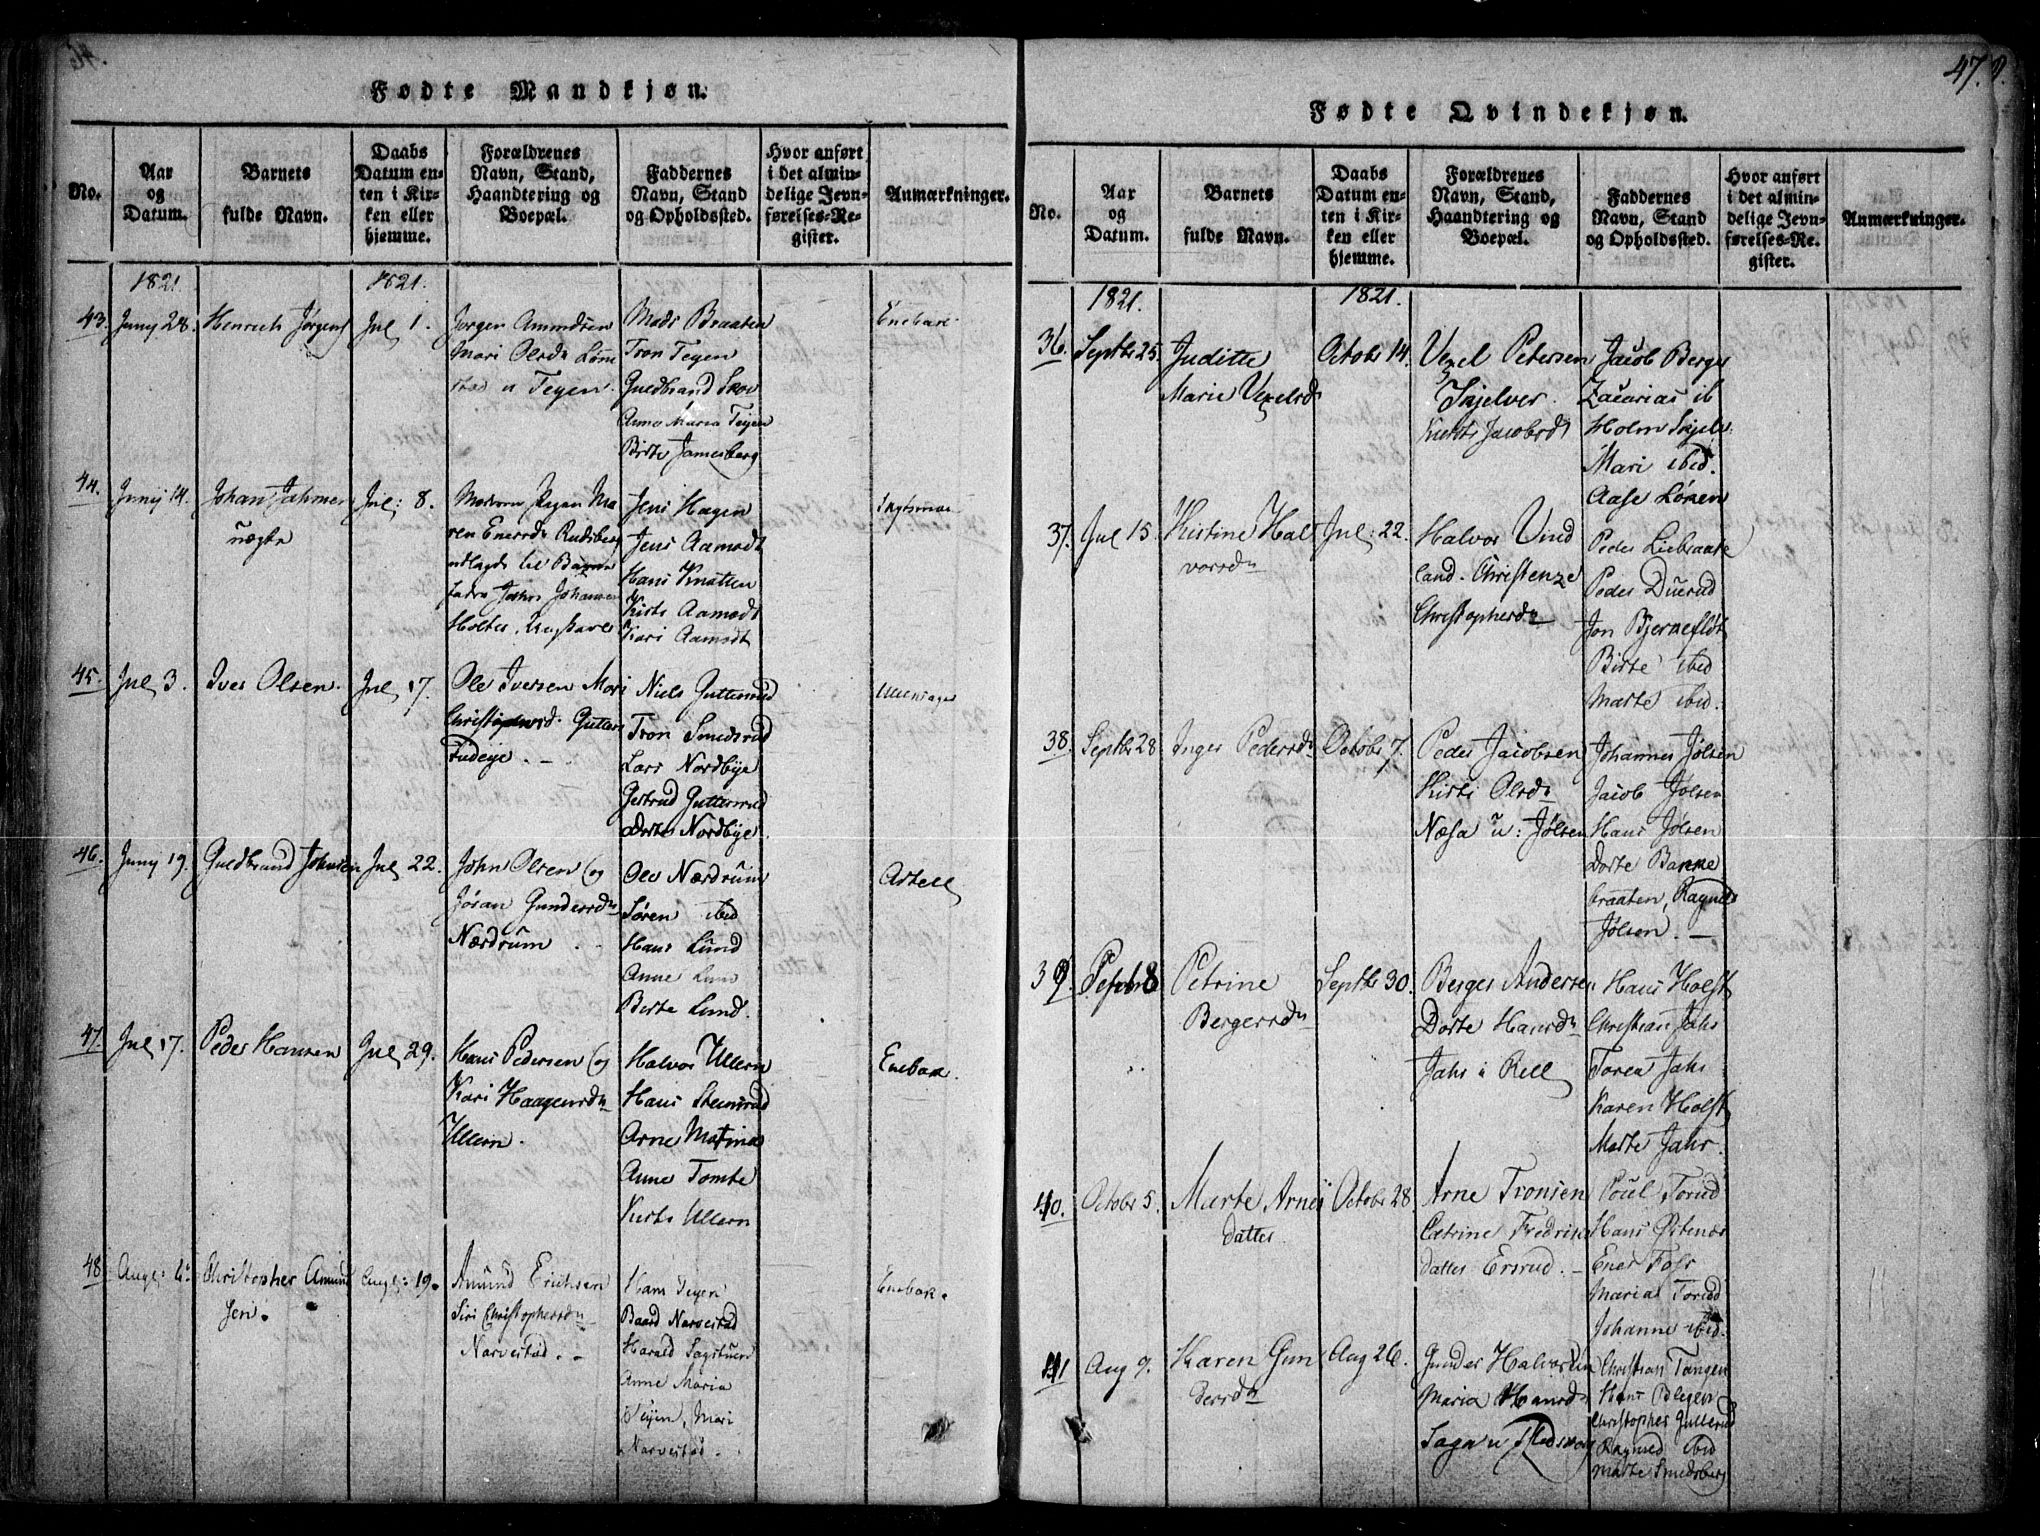 Fødte Mandkjøn.
No.
Aar
og
Datum.
Barnets
fulde Navn.
Daabs
Datum en-
ten i Kir-
ken eller
hjemme.
Forældrenes
Navn, Stand,
Haandtering og
Boepæl.
Faddernes
Navn, Stand
og Opholdssted.
Hvor anført
i det almin-
delige Jevn-
førelses-Re-
gister.
Anmærkninger.
1821
1821.
43. Juny 28.
Henrich Jørgens
Jul, 1.
Jørgen Amundsen
Mari Olsdn
u Teyen.
Mads Braaten
Tron Teyen
Guldbrand Skov
Anne Maria Teyen
Birte
Enebak
44. Juny 14.
Johan
uægte
Jul: 8.
Maren Enersdn Rudsberg
udlagde til Barne
fader
Holter,
Jens Hagen
Jens Aamodt
Hans Knatten
Kirsti Aamodt
Kari Aamodt
45. Jul, 3.
Iver Olsen.
Jul, 17.
Ole Iversen Mari
Christophersd. Gutters
rud eye.
Niels Gutterrud
Tron Smedsrud
Lars Nordbye
Gertrud Gutterrud
Dorte Nordbye.
46. Juny 19.
Guldbrand Johnsen
Jul, 22.
John Olsen og
Jøran Gundersdn
Nærdrum
Ole Nærdrum
Søren ibid
Hans Lund
Anne Lun
Berte Lund.
47. Jul, 17.
Peder Hansen
Jul, 29.
Hans Pedersen og
Kari Haagensdn
Ullern.
Halvor Ullern
Hans Steensrud
Arne
Anne Tomte
Kirsti Ullern
Enebak.
48 Augt:
Christopher Amund
sen.
Augt: 19.
Amund Erichsen
Siri Christophersdn
Narvestad.
Hans Teyen
Baard Narvestad
Harald Sagstuen
Anne Maria
Teyen, Mari
Narvestad.
Enebak.
47.
Fødte Qvindekjøn.
No.
Aar
og
Datum.
Barnets
fulde Navn.
Daabs
Datum en-
ten i Kir-
ken eller
hjemme.
Forældrenes
Navn, Stand,
Haandtering og
Boepæl.
Faddernes
Navn, Stand
og Opholdssted.
Hvor anført
i det almin-
delige Jevn-
førelses-Re-
gister.
Anmærkninger.
1821.
1821.
36. Septbr 25
Juditte
Marie Vexelsd
Octobr 14.
Vexel Petersen
Skjelver.
Kirsti Jacobsd
Jacob Berger
Zacarias ib
Holm Skjelv.
Mari ibid.
Aase Lønen
37. Jul 15.
Kistine Hal
vorsdn
Jul: 22.
Halvor Vind
land. Christenze
Christophersdn
Peder Liebraate
Peder Duerud
Jon Bjerkefløt
Birte ibid
Marte ibid.
38. Septbr 28
Inger Pedersdn
Octobr 7.
Peder Jacobsen
Kirsti Olsdn
Næsa u: Jølsen
Johannes Jølsen
Jacob Jølsen
Hans Jølsen
Dorte Bakke
braaten, Ragnild
Jølsen.
39. 8
Petrine
Bergersdn
Septbr 30.
Berger Andersen
Dorte Hansdn
Jahr i Rell
Hans Holst
Christian Jahr
Torer Jahr
Karen Holst
Marte Jahr.
40. Octobr 5.
Marte Arnes
datter
Octobr 28
Arne Tronsen
Catrine Fredriks
datter Ersrud.
Poul Torud
Hans Østenor
Ener Fosr
Maria Torud
Johanne ibid.
41 Aug 9.
Karen Gun
dersdn
Aug 26.
Gunder Halvorsen
Maria Hansdn
Saga u
Christian Tangen
Christopher Gullerud
Ragnild ibid
Marte Smedsberg